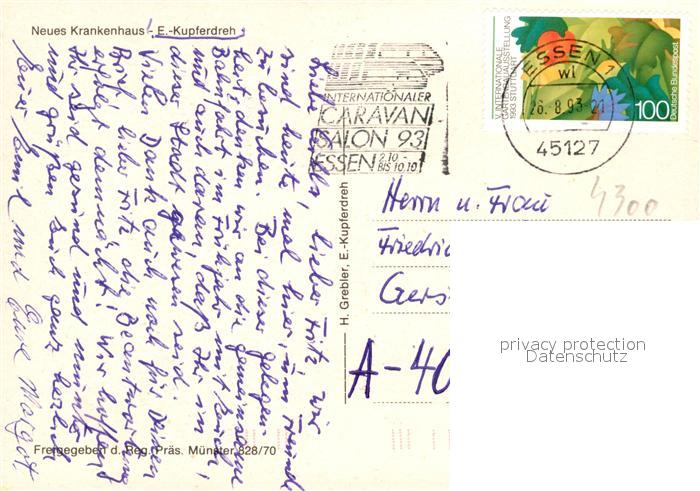 Neues Krankenhaus - E.-Kupferdreh
Liebe lieber Fritz, wir
sind heute mal hier, um Freunde
zu besuchen. Bei dieser Gelegen-
heit denken wir an die gemeinsame
Bahnfahrt im Frühjahr mit Euch,
und auch daran, daß Ihr in
dieser Stadt gewesen seid.
Vielen Dank auch noch für Deinen
Brief, lieber Fritz, die Beantwortung
erfolgt demnächst! Wir hoffen,
Ihr seid gesund und munter
und grüßen Euch ganz herzlich
Euer und Eure Margot
Freigegeben d. Reg. Präs. Münster 828/70
H. Grebler, E.-Kupferdreh
INTERNATIONALER
CARAVAN
SALON 93
ESSEN 2.10.
BIS 10.10
ESSEN 1
wl
26.8.93-21
45127
V. INTERNATIONALE
GARTENBAUAUSSTELLUNG
1993 STUTTGART
Deutsche Bundespost
100
4300
Herrn u. Frau
Friedric
Gers
A-40
privacy protection
Datenschutz